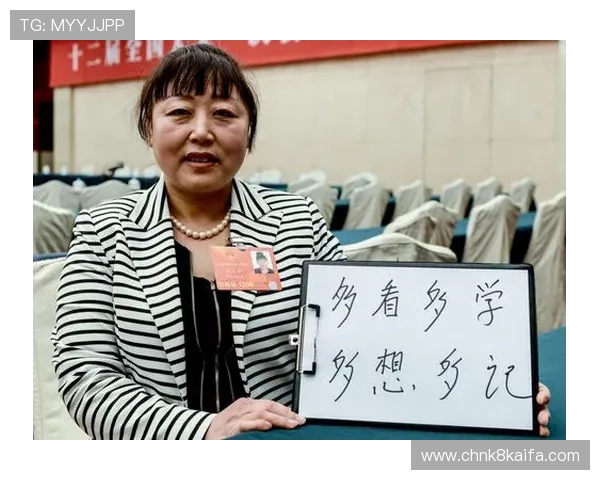 TG: MYYJJPP
十二届全国人大
多看多学
多想多记
www.chnk8kaifa.com